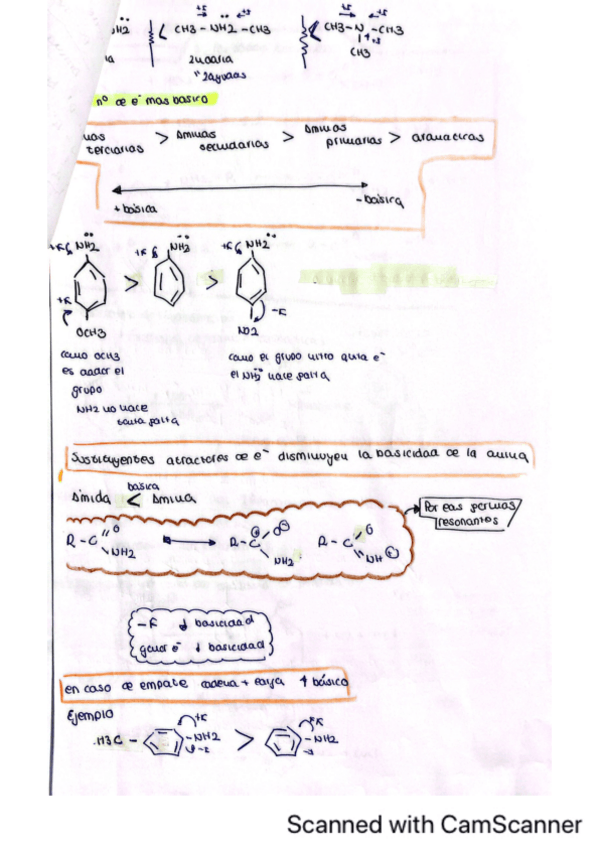 CH3 - NH2 - CH3
CH3 - N - CH3
CH3
nº de e⁻ mas basico
terciarias > aminas secundarias > aminas primarias > aromaticas
+ básica
- básica
NH2 > NH2 > NH2
OCH3
NO2
como OCH3
es dador el
grupo
NH2 no hace
tanta falta
como el grupo nitro quita e⁻
el NH2 hace falta
Sustituyentes atractores de e⁻ disminuyen la basicidad de la amina
basica
Amida < Amina
Por eas formas
resonantes
R-C
O
NH2
R-C
O
NH2
R-C
O
NH
↓ basicidad
↓ basicidad
en caso de empate cadena + larga ↑ básico
Ejemplo
H3C - NH2 > - NH2
Scanned with CamScanner